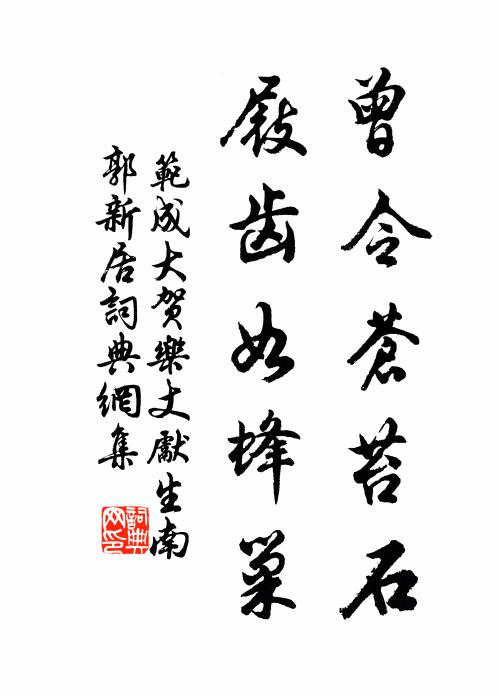 曾令蒼苔石
屐齿如蜂巢
範成大賀樂丈獻生南
郭新居詞典網集
詞典网印